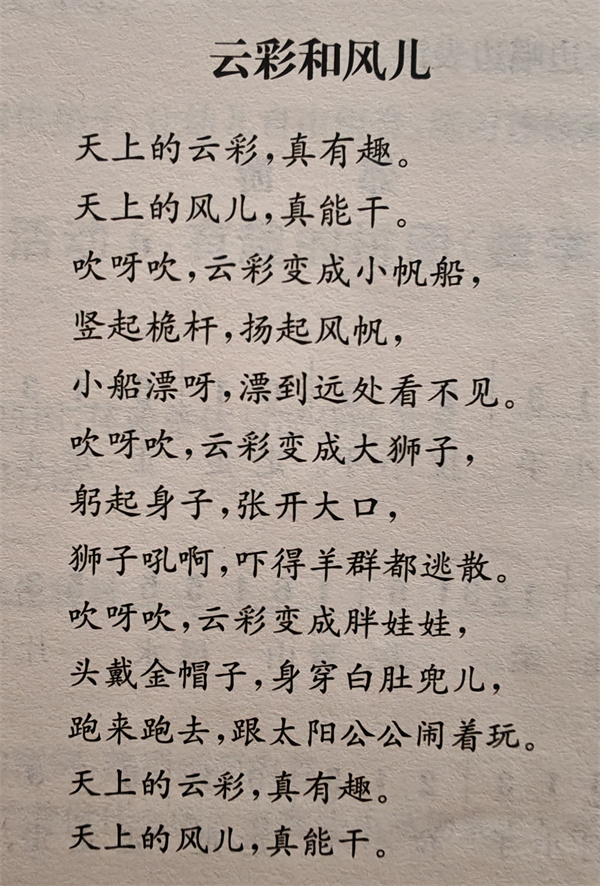 云彩和风儿
天上的云彩,真有趣。
天上的风儿,真能干。
吹呀吹,云彩变成小帆船,
竖起桅杆,扬起风帆,
小船漂呀,漂到远处看不见。
吹呀吹,云彩变成大狮子,
躬起身子,张开大口,
狮子吼啊,吓得羊群都逃散。
吹呀吹,云彩变成胖娃娃,
头戴金帽子,身穿白肚兜儿,
跑来跑去,跟太阳公公闹着玩。
天上的云彩,真有趣。
天上的风儿,真能干。